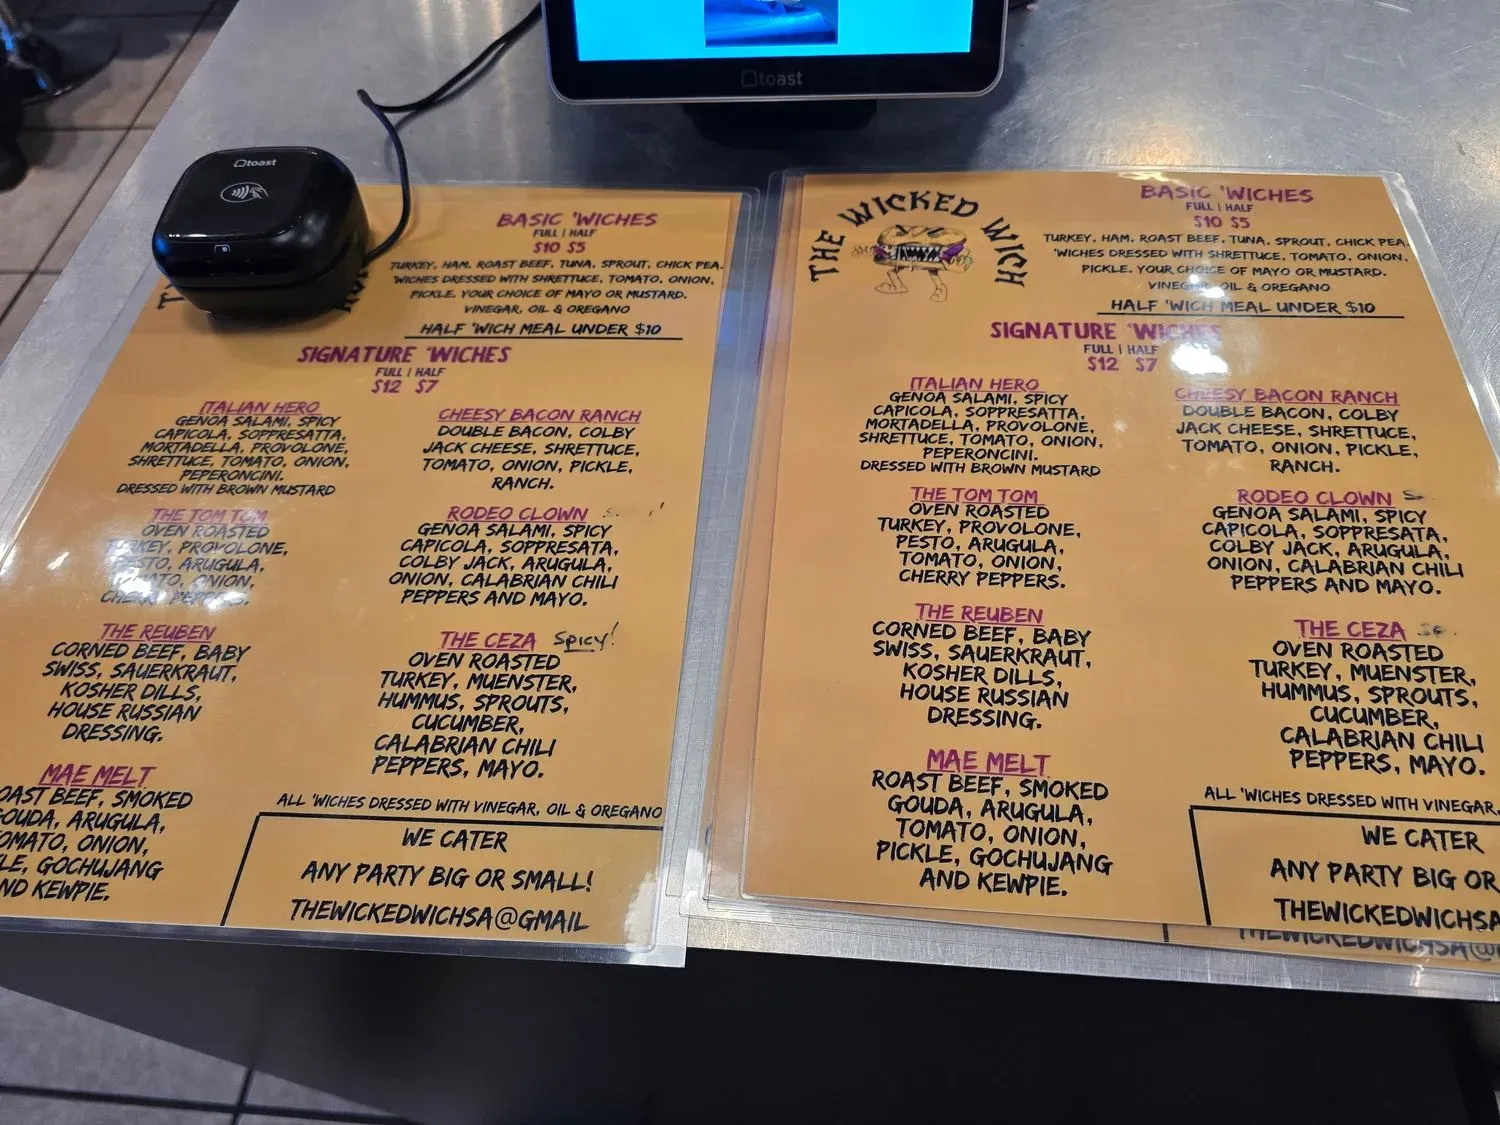 toast
toast
BASIC 'WICHES
FULL | HALF
$10 $5
TURKEY, HAM, ROAST BEEF, TUNA, SPROUT, CHICK PEA.
'WICHES DRESSED WITH SHRETTUCE, TOMATO, ONION,
PICKLE. YOUR CHOICE OF MAYO OR MUSTARD.
VINEGAR, OIL & OREGANO
HALF 'WICH MEAL UNDER $10
SIGNATURE 'WICHES
FULL | HALF
$12 $7
ITALIAN HERO
GENOA SALAMI, SPICY
CAPICOLA, SOPPRESATTA,
MORTADELLA, PROVOLONE,
SHRETTUCE, TOMATO, ONION,
PEPERONCINI.
DRESSED WITH BROWN MUSTARD
THE TOM TOM
OVEN ROASTED
TURKEY, PROVOLONE,
PESTO, ARUGULA,
TOMATO, ONION,
CHERRY PEPPERS.
THE REUBEN
CORNED BEEF, BABY
SWISS, SAUERKRAUT,
KOSHER DILLS,
HOUSE RUSSIAN
DRESSING.
MAE MELT
OAST BEEF, SMOKED
GOUDA, ARUGULA,
OMATO, ONION,
LE, GOCHUJANG
ND KEWPIE.
CHEESY BACON RANCH
DOUBLE BACON, COLBY
JACK CHEESE, SHRETTUCE,
TOMATO, ONION, PICKLE,
RANCH.
RODEO CLOWN
GENOA SALAMI, SPICY
CAPICOLA, SOPPRESATA,
COLBY JACK, ARUGULA,
ONION, CALABRIAN CHILI
PEPPERS AND MAYO.
THE CEZA Spicy!
OVEN ROASTED
TURKEY, MUENSTER,
HUMMUS, SPROUTS,
CUCUMBER,
CALABRIAN CHILI
PEPPERS, MAYO.
ALL 'WICHES DRESSED WITH VINEGAR, OIL & OREGANO
WE CATER
ANY PARTY BIG OR SMALL!
THEWICKEDWICHSA@GMAIL
THE WICKED WICH
BASIC 'WICHES
FULL | HALF
$10 $5
TURKEY, HAM, ROAST BEEF, TUNA, SPROUT, CHICK PEA.
'WICHES DRESSED WITH SHRETTUCE, TOMATO, ONION,
PICKLE. YOUR CHOICE OF MAYO OR MUSTARD.
VINEGAR, OIL & OREGANO
HALF 'WICH MEAL UNDER $10
SIGNATURE 'WICHES
FULL | HALF
$12 $7
ITALIAN HERO
GENOA SALAMI, SPICY
CAPICOLA, SOPPRESATTA,
MORTADELLA, PROVOLONE,
SHRETTUCE, TOMATO, ONION,
PEPERONCINI.
DRESSED WITH BROWN MUSTARD
THE TOM TOM
OVEN ROASTED
TURKEY, PROVOLONE,
PESTO, ARUGULA,
TOMATO, ONION,
CHERRY PEPPERS.
THE REUBEN
CORNED BEEF, BABY
SWISS, SAUERKRAUT,
KOSHER DILLS,
HOUSE RUSSIAN
DRESSING.
MAE MELT
ROAST BEEF, SMOKED
GOUDA, ARUGULA,
TOMATO, ONION,
PICKLE, GOCHUJANG
AND KEWPIE.
CHEESY BACON RANCH
DOUBLE BACON, COLBY
JACK CHEESE, SHRETTUCE,
TOMATO, ONION, PICKLE,
RANCH.
RODEO CLOWN
GENOA SALAMI, SPICY
CAPICOLA, SOPPRESATA,
COLBY JACK, ARUGULA,
ONION, CALABRIAN CHILI
PEPPERS AND MAYO.
THE CEZA
OVEN ROASTED
TURKEY, MUENSTER,
HUMMUS, SPROUTS,
CUCUMBER,
CALABRIAN CHILI
PEPPERS, MAYO.
ALL 'WICHES DRESSED WITH VINEGAR,
WE CATER
ANY PARTY BIG OR
THEWICKEDWICHSA
THEWICKEDWICHSA@